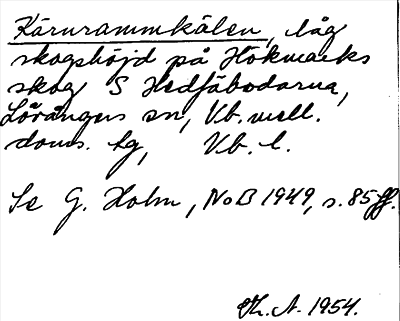 Kärnrammkälen, låg
skogshöjd på Hökmarks
skog S Hedfäbodarna,
Lövångers sn, Vb. mell.
doms. tg, Vb. l.
Se G. Holm, NoB 1949, s. 85 ff.
Th. A. 1954.